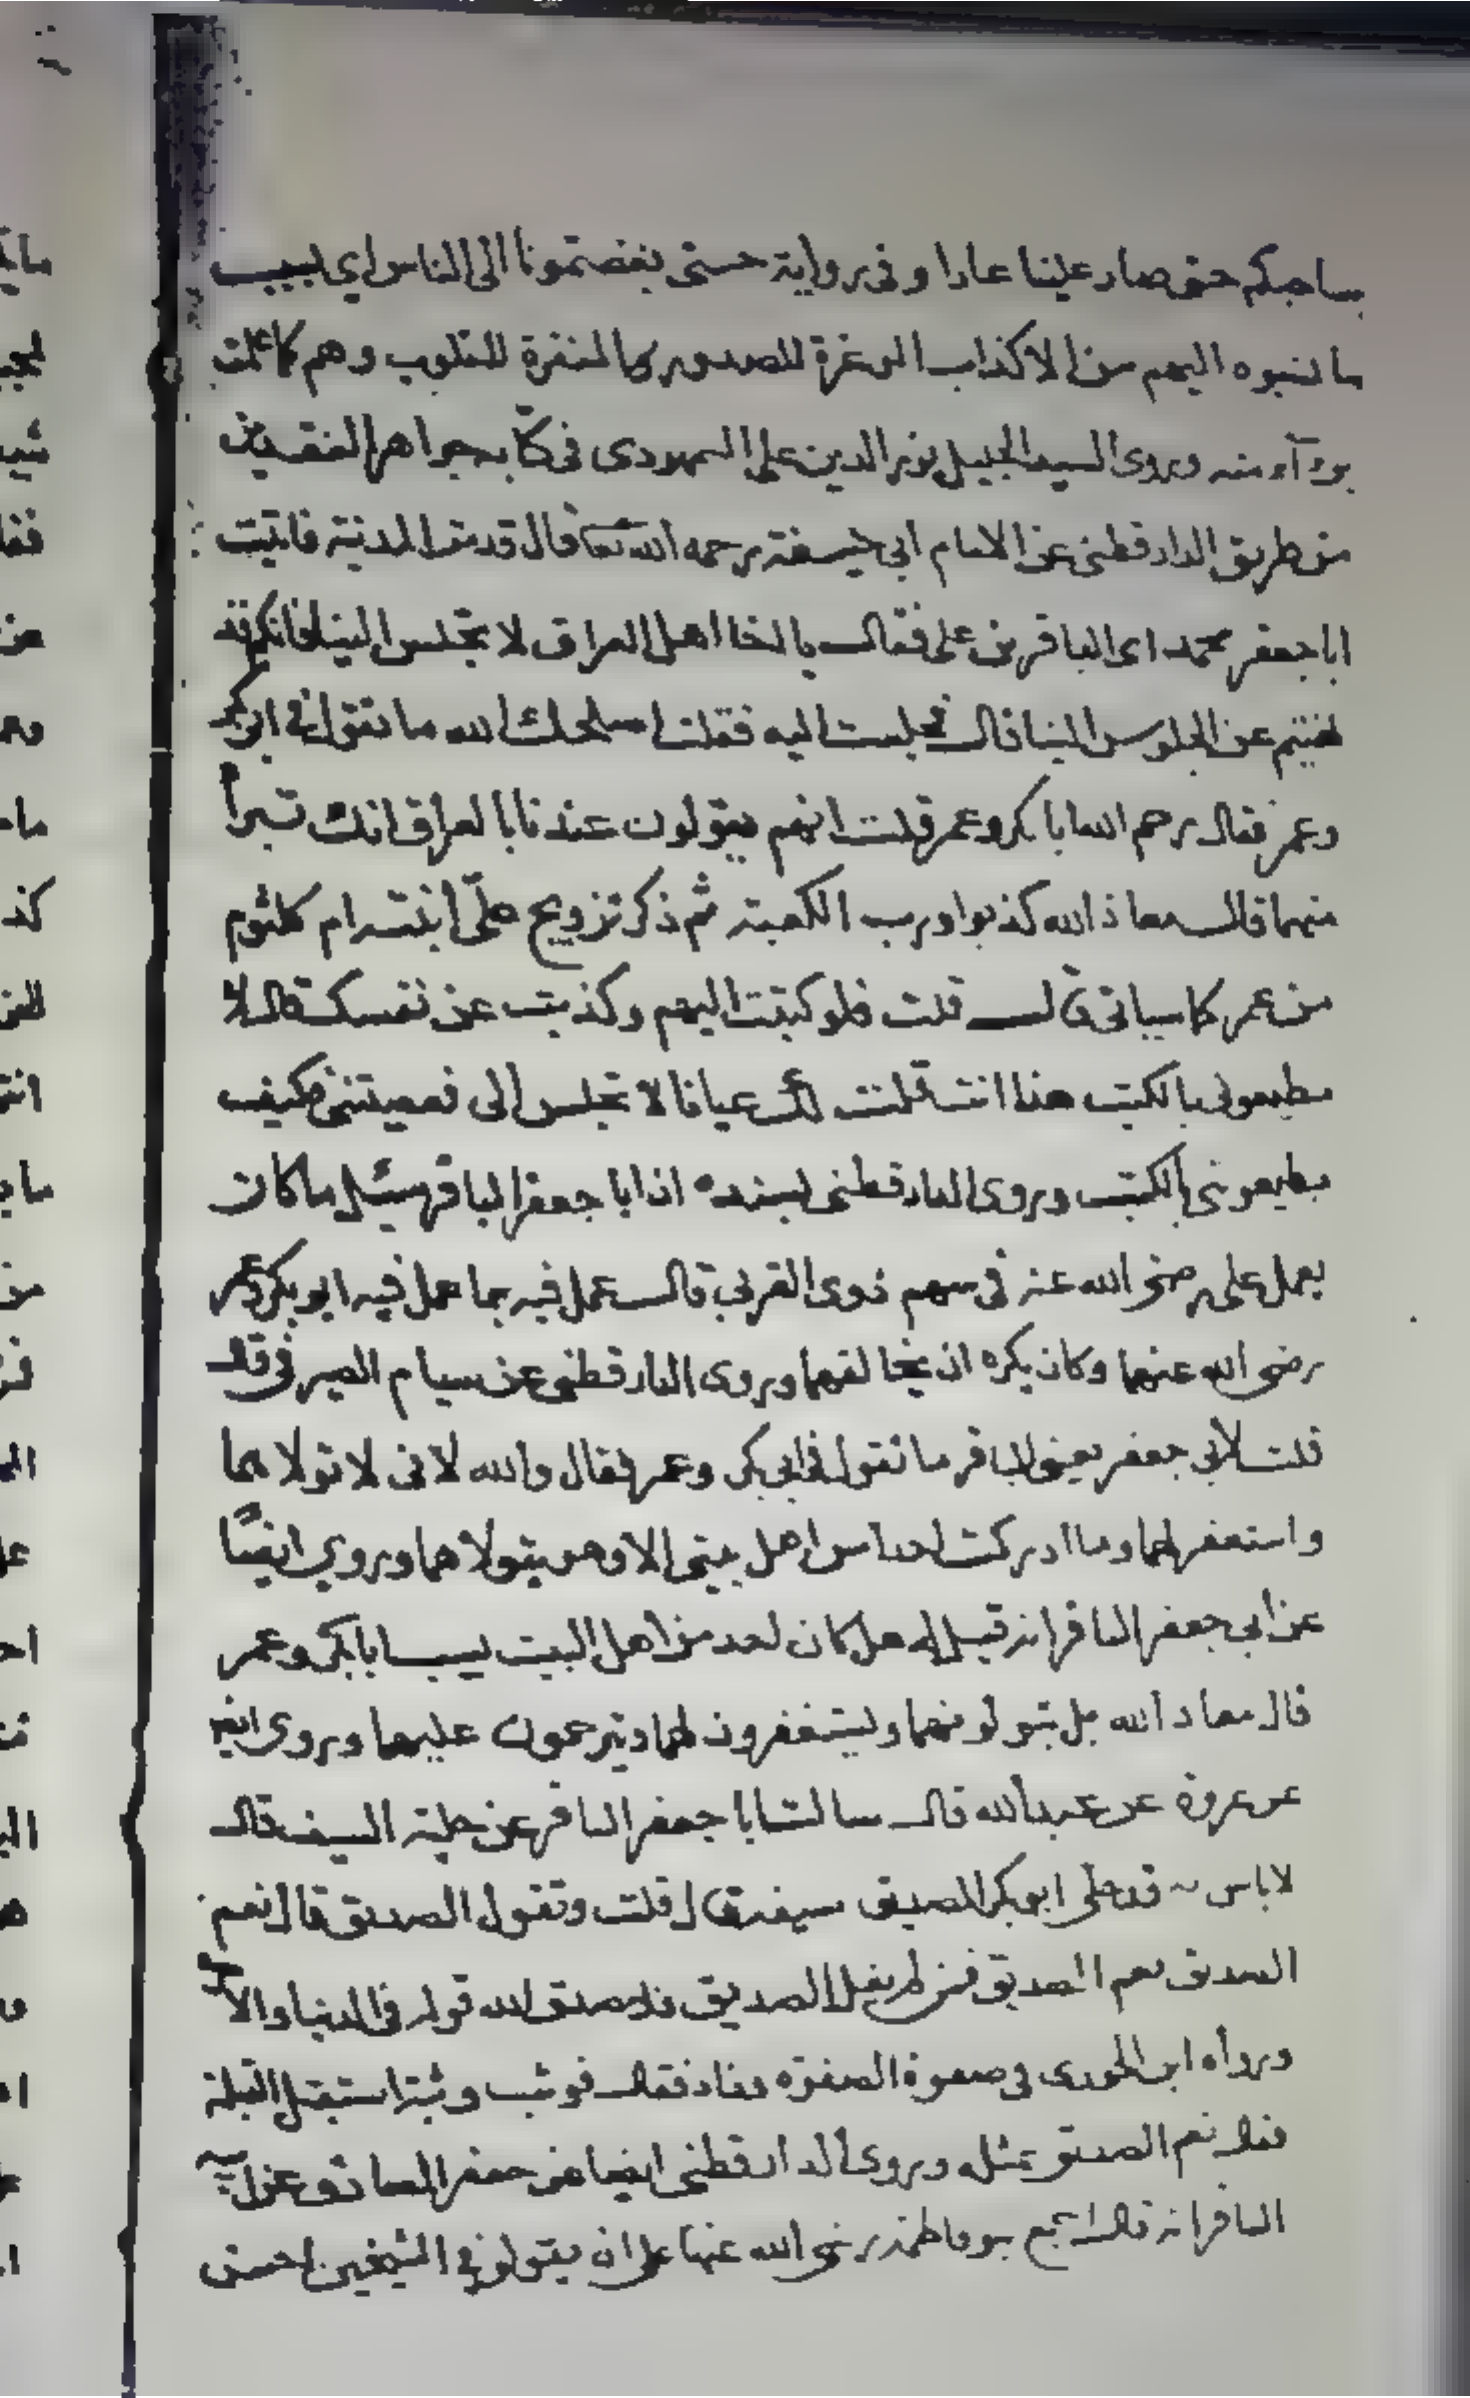 بنا حبكم حتى صار علينا عارا وفى رواية حتى بغضتمونا الى الناس اي بسبب
ما نسبوه اليهم من الاكذاب الموغرة للصدور كالمنفرة للقلوب وهم كما علمت
برءآء منه وروى السيد الجليل نور الدين على السمهودى فى كتابه جواهر العقدين
من طريق الدار قطنى عن الامام ابي حنيفة رحمه الله تعا قال قدمت المدنية فاتيت
ابا جعفر محمد اى الباقر بن على فقال يا اخا اهل العراق لا تجلس الينا فانكم قد
نهيتم عن الجلوس الينا قال فجلست اليه فقلت اصلحك الله ما تقول فى ابي بكر
وعمر فقال رحم الله ابا بكر وعمر قلت انهم يقولون عندنا بالعراق انك تبرأ
منهما قال معاذ الله كذبوا ورب الكعبة ثم ذكر تزويج علىّ ابنته ام كلثوم
من عمر كما سياتى قال قلت فلو كتبت اليهم وكذبت عن نفسك قال لا
يطيعونى بالكتب هذا انت قلت لك عيانا لا تجلس الى فعصيتنى فكيف
يطيعونى بالكتب وروى الدار قطنى بسنده ان ابا جعفر الباقر سئل ما كان
يعمل على رضى الله عنه فى سهم ذوى القربى قال عمل فيه بما عمل فيه ابو بكر وعمر
رضى الله عنهما وكان يكره ان يخالفهما وروى الدار قطنى عن سيام الصيرفى قال
قلت لأبى جعفر يعنى الباقر ما تقول فى ابى بكر وعمر فقال والله لانى لاتولاهما
واستغفر لهما وما ادركت احدا من اهل بيتى الا وهو يتولاهما وروي ايضًا
عن ابى جعفر الباقر انه قيل له هل كان احد من اهل البيت يسب ابا بكر وعمر
قال معاذ الله بل يتولونهما ويستغفرون لهما ويترحمون عليهما وروى ايض
عن عروة عن عبدالله قال سالت ابا جعفر الباقر عن حلية السيف قال
لاباس به قد حلى ابو بكر الصديق سيفه قال قلت وتقول الصديق قال نعم
الصديق نعم الصديق فمن لم يقل الصديق فلا صدق الله قوله فى الدنيا والاخرة
ورواه ابن الجوزى فى صفوة الصفوة وزاد فقال فوثب وثبة استقبل القبلة
فقال نعم الصديق بمثله وروى الدار قطنى ايضا عن جعفر الصادق عن ابيه
الباقر انه قال اجمع بنو فاطمة رضى الله عنها على ان يقولوا فى الشيخين احسن